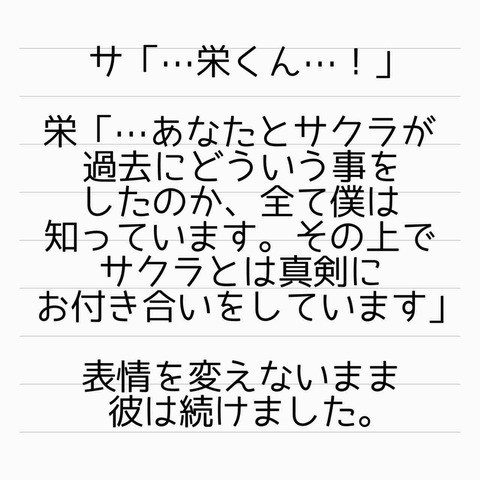 サ「…栄くん…！」
栄「…あなたとサクラが
過去にどういう事を
したのか、全て僕は
知っています。その上で
サクラとは真剣に
お付き合いをしています」
表情を変えないまま
彼は続けました。